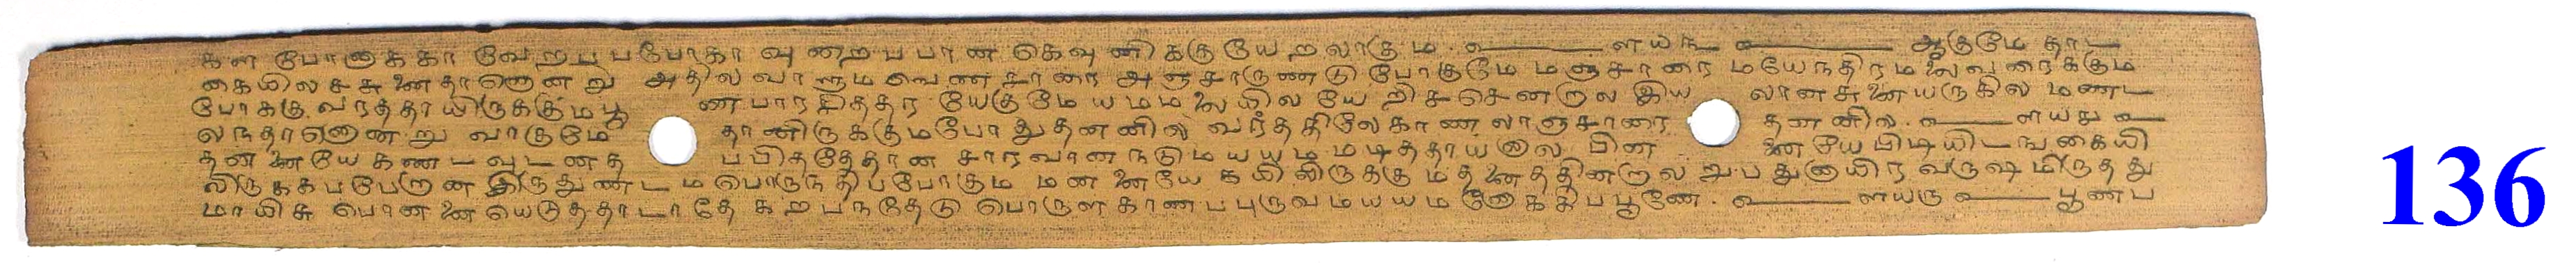 கள போனகைகா வேறபபபோகா வுறைபபான கெவுனி ககுயேறலாகும. ௳ ளயந ௳ ஆகுமே தாட
கையிலசசுனைதானென று அதில வாளும வெண சாரை அஞசாருணடு போகுமே மஞசாரை மயேநதிரமலைவரைககும
போககு வரததாயிருககுமபூ ண பாரசிததர யேகுமே யமமலையில யே றிசசெனறால இய லானசுனையருகில மணட
லநதானென று வாகுமே தானிருககுமபோதுதனனில வரததிலேகாணலாஞசாரை தனனில. ௳ ளயது ௳
தனனையே கணட வுடனத பபிதததேதான சாரவான நடுமயயம மடிததாயானால பின னையே பிடியிடஙகையி
லிருககபபேறான இருதுணடம பொருநதிபபோகும மனனையே கயிலிருககும தனைததினறால அபதுனாயிர வருஷமிருதது
மாயிசு பொனனை யெடுததாடாதே கறபநதேடு பொருள காணபபுருவமயயம நோககிபபூணே. ௳ ளயரு ௳ பூணப